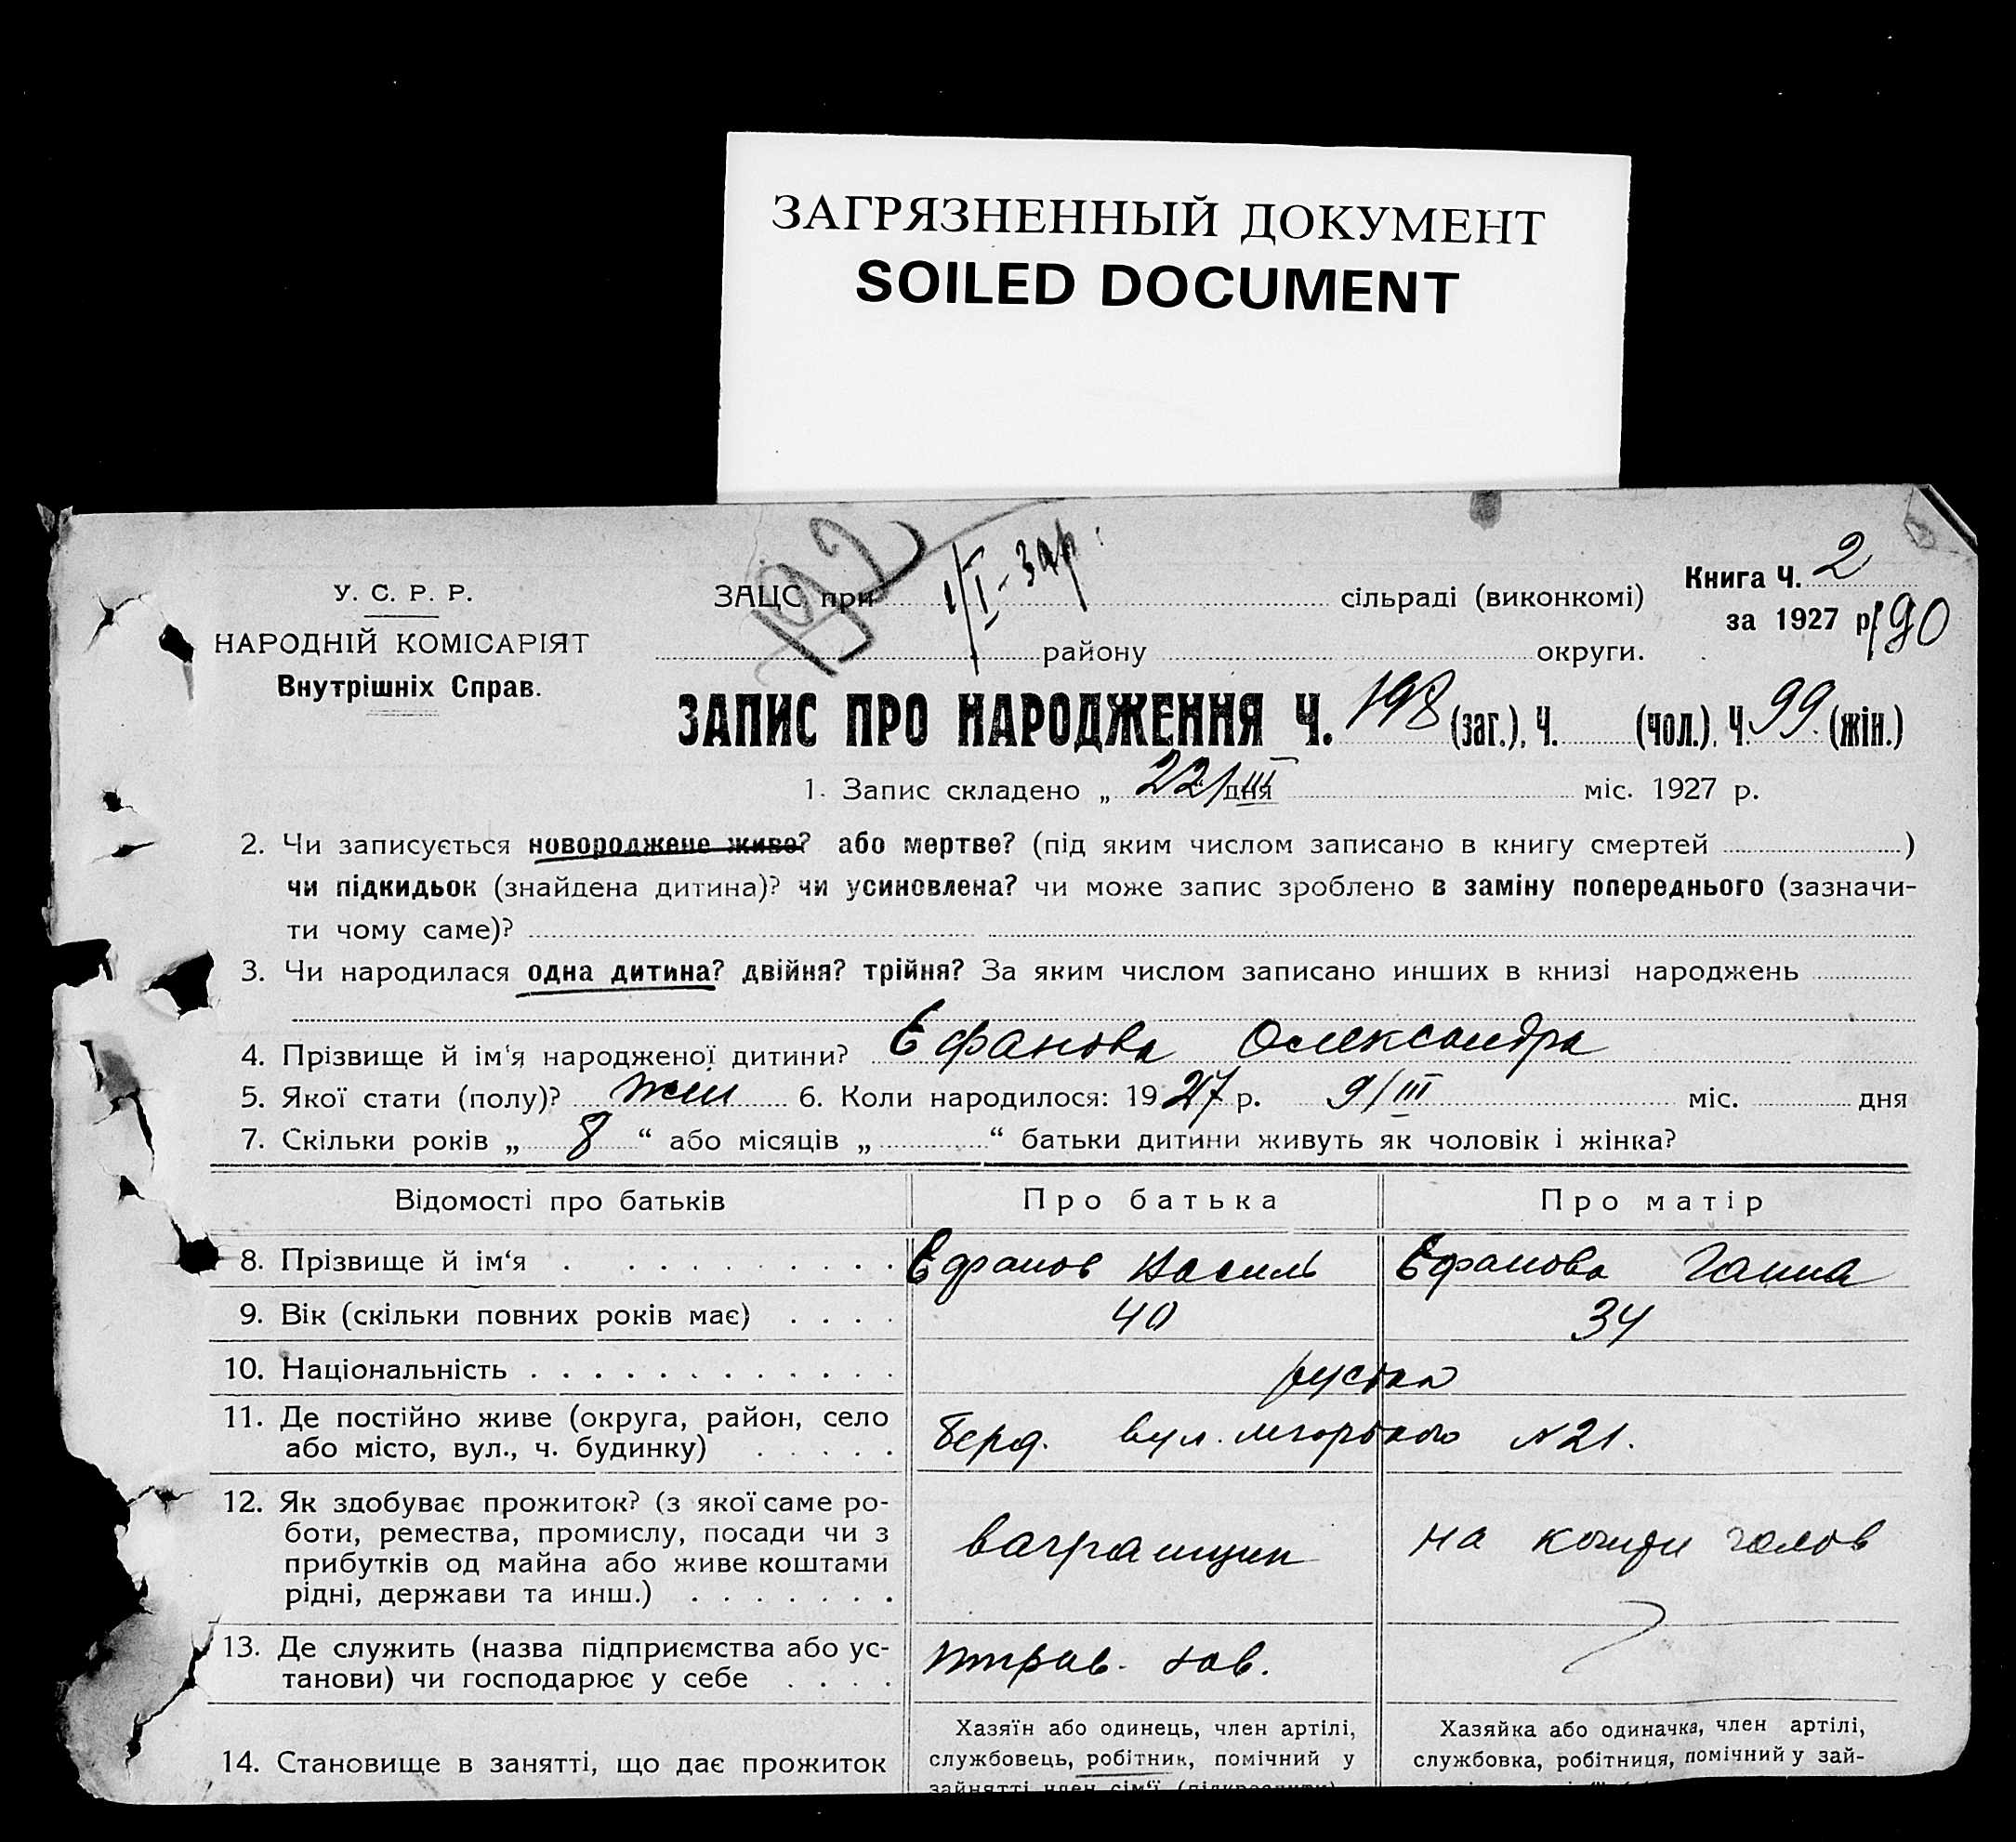 ЗАГРЯЗНЕННЫЙ ДОКУМЕНТ
SOILED DOCUMENT
192
1/I - зар.
У. С. Р. Р.
НАРОДНІЙ КОМІСАРІЯТ
Внутрішніх Справ.
ЗАЦС при сільраді (виконкомі)
району округи.
Книга Ч. 2
за 1927 р. 190
ЗАПИС ПРО НАРОДЖЕННЯ Ч. 198 (заг.), Ч. (чол.), Ч. 99. (жін.)
1. Запис складено „ 22/III дня міс. 1927 р.
2. Чи записується новороджене живе? або мертве? (під яким числом записано в книгу смертей )
чи підкидьок (знайдена дитина)? чи усиновлена? чи може запис зроблено в заміну попереднього (зазначи-
ти чому саме)?
3. Чи народилася одна дитина? двійня? трійня? За яким числом записано инших в книзі народжень
4. Прізвище й ім‘я народженої дитини? Ефанова Олександра
5. Якої стати (полу)? жін 6. Коли народилося: 1927 р. 9/III міс. дня
7. Скільки років „ 8 “ або місяців „ “ батьки дитини живуть як чоловік і жінка?
Відомості про батьків Про батька Про матір
8. Прізвище й ім‘я Ефанов Василь Ефанова Ганна
9. Вік (скільки повних років має) 40 34
10. Національність
11. Де постійно живе (округа, район, село
або місто, вул., ч. будинку) Берд. вул. №21.
12. Як здобуває прожиток? (з якої саме ро-
боти, ремества, промислу, посади чи з
прибутків од майна або живе коштами
рідні, держави та инш.) вагращик на голов
13. Де служить (назва підприємства або ус-
танови) чи господарює у себе зав.
14. Становище в занятті, що дає прожиток
Хазяїн або одинець, член артілі,
службовець, робітник, помічний у
зайнятті член сім‘ї (підкреслити)
Хазяйка або одиначка, член артілі,
службовка, робітниця, помічний у зай-